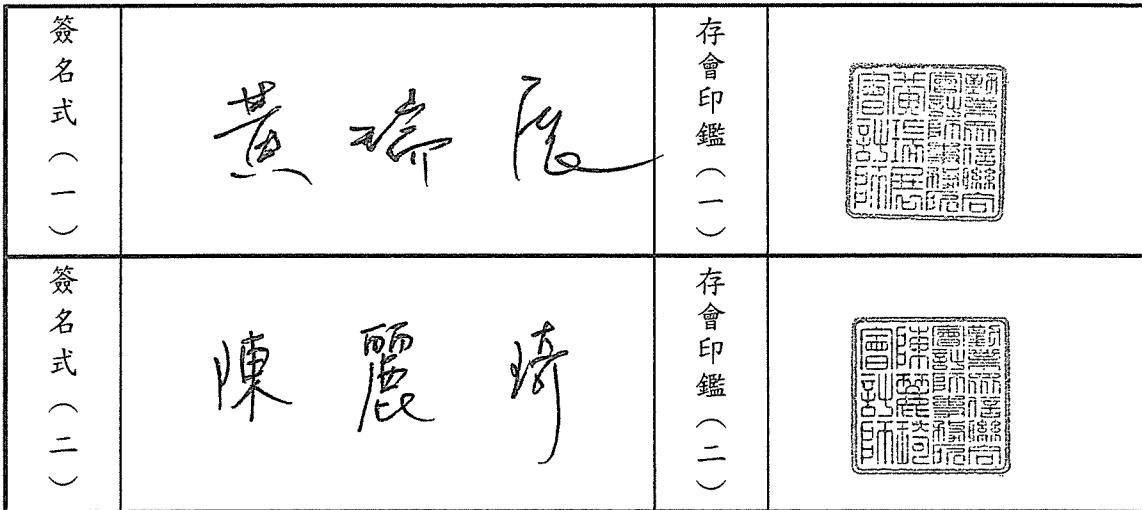 簽名式（一）
黃瑞展
存會印鑑（一）
勤業眾信聯合
會計師事務所
黃瑞展
會計師
簽名式（二）
陳麗琦
存會印鑑（二）
勤業眾信聯合
會計師事務所
陳麗琦
會計師